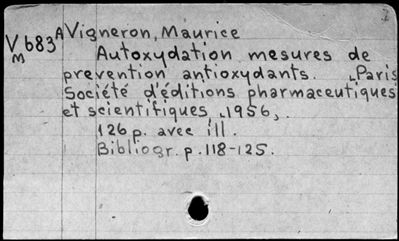 Vb683A Vigneron, Maurice
m
Autoxydation, mesures de
prevention antioxydants. Paris
Société d'éditions pharmaceutiques
et scientifiques, 1956,.
126 p. avec ill.
Bibliogr. p. 118-125.